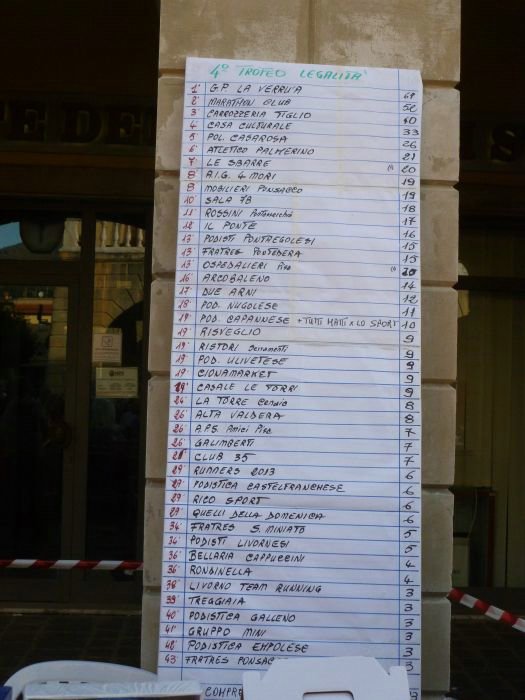 4° TROFEO LEGALITA'
1° G.P. LA VERRU'A
2° MARATHON CLUB 52
3° CARROZZERIA TIGLIO 40
4° CASA CULTURALE 33
5 POL. CASAROSA 26
6° ATLETICO PALMERINO 21
7 LE SBARRE (1) 20
8° A.I.G. 4 MORI 19
8 MOBILIERI PONSACCO 19
10° SALA 78 18
11° ROSSINI Pontasserchio 17
12° IL PONTE 16
13° PODISTI PONTREGOLESI 15
13° FRATRES PONTEDERA 15
13° OSPEDALIERI Pisa (1)
16 ARCOBALENO 14
17° DUE ARNI 12
18° POD. NUGOLESE 11
19° POD. CAPANNESE + TUTTI MATTI X LO SPORT 10
19 RISVEGLIO 9
19° RISTORI Serramenti 9
19° POD. ULIVETESE 9
19° CIONAMARKET 9
CASALE LE TORRI 9
LA TORRE Cenaia 8
26° ALTA VALDERA 8
26° A.P.S. Amici Pisa 7
26° GALIMBERTI 7
CLUB 35 7
29° RUNNERS 2013 6
29° PODISTICA CASTELFRANCHESE 6
29 RICO SPORT 6
29° QUELLI DELLA DOMENICA 6
34° FRATRES S. MINIATO 5
34° PODISTI LIVORNESI 5
36° BELLARIA CAPPUCCINI 4
36° RONDINELLA 4
38° LIVORNO TEAM RUNNING 3
39° TREGGIAIA 3
40° PODISTICA GALLENO 3
41° GRUPPO MINI 3
42° PODISTICA EMPOLESE 3
43° FRATRES PONSACC 3
COMPRE